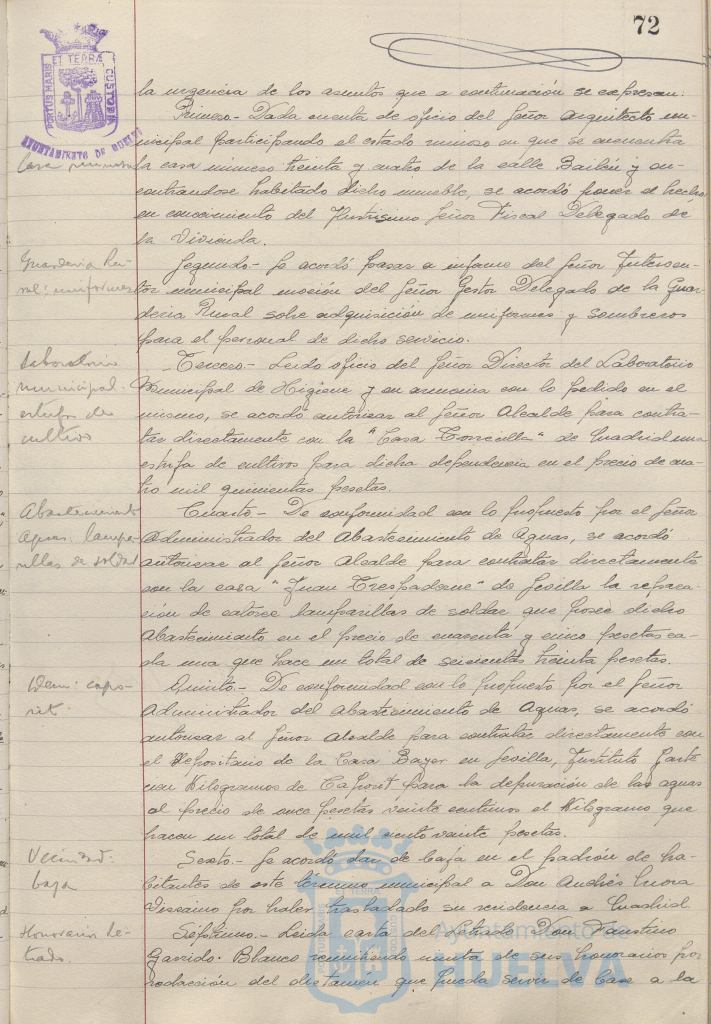 72
PORTUS MARIS ET TERRA CUSTODIA
AYUNTAMIENTO DE HUELVA
la urgencia de los asuntos que a continuación se expresan:
Primero.- Dada cuenta de oficio del Señor Arquitecto mu-
nicipal participando el estado ruinoso en que se encuentra
Casa ruinosa
la casa número treinta y cuatro de la calle Bailén y en-
contrandose habitado dicho inmueble, se acordó poner el hecho
en conocimiento del Ilustrisimo Señor Fiscal Delegado de
la Vivienda.
Guarderia Ru-
ral: uniformes
Segundo.- Se acordó pasar a informe del Señor Interven-
tor municipal moción del Señor Gestor Delegado de la Guar-
deria Rural sobre adquisición de uniformes y sombreros
para el personal de dicho servicio.
Laboratorio
municipal.
estufa de
cultivos
Tercero.- Leido oficio del Señor Director del Laboratorio
Municipal de Higiene y en armonia con lo pedido en el
mismo, se acordó autorizar al Señor Alcalde para contra-
tar directamente con la "Casa Torrecilla" de Madrid una
estufa de cultivos para dicha dependencia en el precio de cua-
tro mil quinientas pesetas.
Abastecimiento
Aguas: lampa-
rillas de soldar
Cuarto.- De conformidad con lo propuesto por el Señor
Administrador del Abastecimiento de Aguas, se acordó
autorizar al Señor Alcalde para contratar directamente
con la casa "Juan Trespaderne" de Sevilla la repara-
ción de catorce lamparillas de soldar que posee dicho
Abastecimiento en el precio de cuarenta y cinco pesetas ca-
da una que hace un total de seiscientas treinta pesetas.
Idem: capo-
rit.
Quinto.- De conformidad con lo propuesto por el Señor
Administrador del abastecimiento de Aguas, se acordó
autorizar al Señor Alcalde para contratar directamente con
el Depositario de la Casa Bayer en Sevilla, Instituto
cien Kilogramos de Caporit para la depuración de las aguas
al precio de once pesetas veinte centimos el Kilogramo que
hacen un total de mil ciento veinte pesetas.
Vecindad:
baja
Sexto.- Se acordó dar de baja en el padrón de ha-
bitantes de este término municipal a Don Andrés Mora
Viscaino por haber trasladado su residencia a Madrid.
Honorarios Le-
trado.
Séptimo.- Leida carta del Letrado Don Faustino
Garrido. Blanco remitiendo minuta de sus honorarios por
redacción del dictamen que pueda servir de base a la
Ayuntamiento de
HUELVA